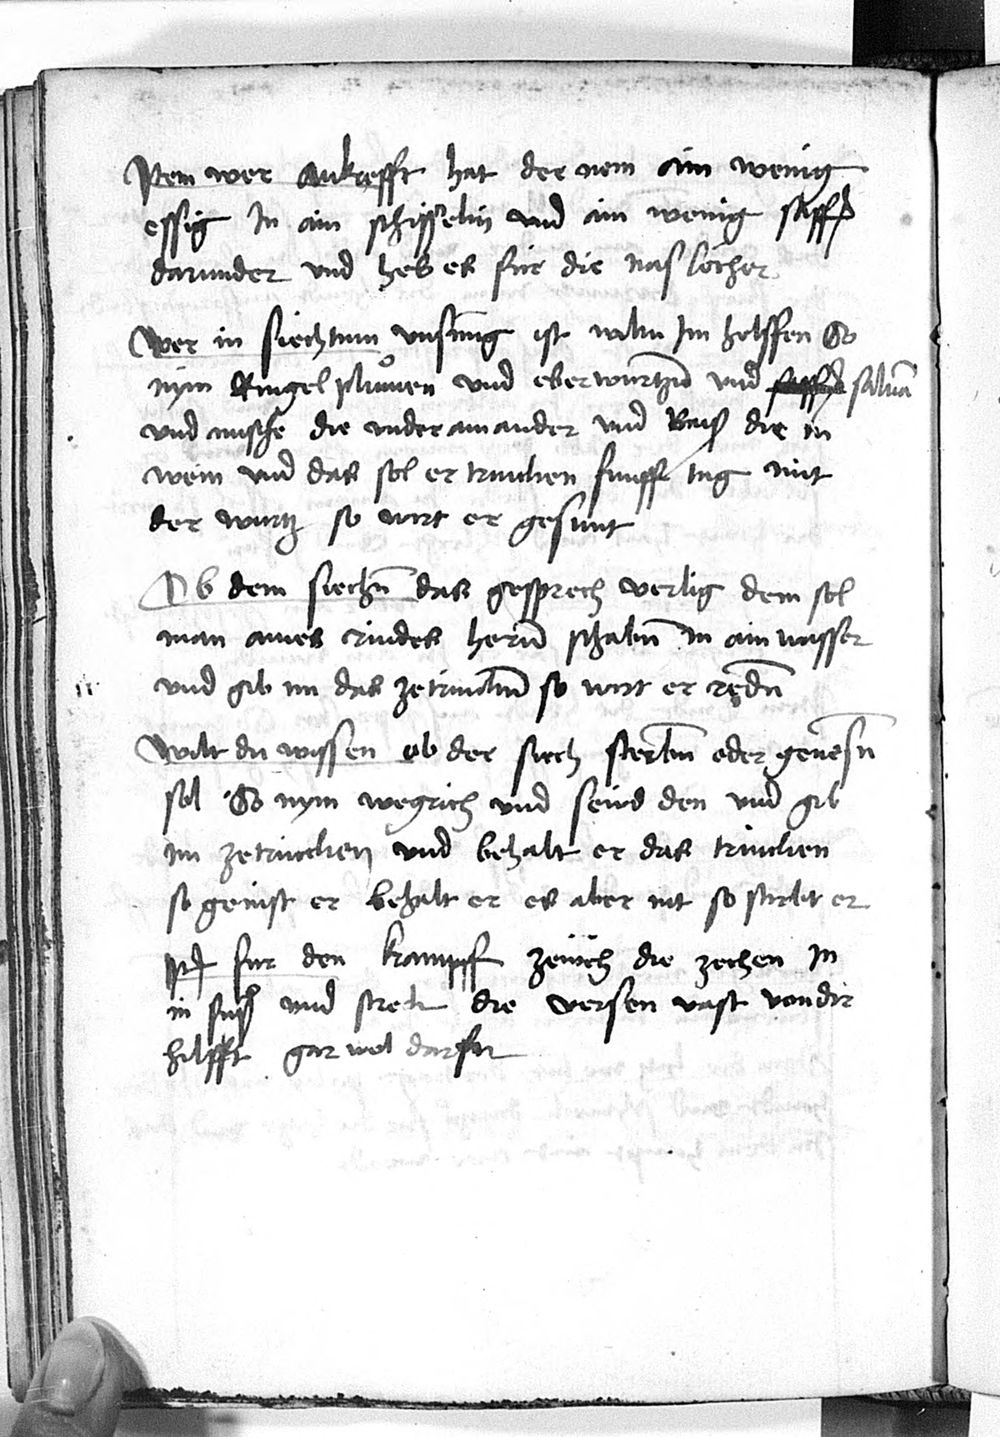 Item wer ankrefft hat der nem ain wenig
essig In ain schisselin vnd ain wenig saffr
darunder vnd heb es fur die naslöcher
Wer in siechtum vnsinig ist wiltu Im helffen So
nÿm Ringelpluomen vnd eberwurtzen vnd saluia
vnd musche die vnderainander vnd Bais die in
wein vnd das sol er trincken funff tag mit
der wurtz so wirt er gesunt
Ob dem siechn das gesprech verlig dem sol
man aines rindes horn schabn in ain wasser
vnd gib im das zetrincken so wirt er redn
Wilt du wissen ob der siech sterbn oder genesn
sol So nym wegrich vnd seud den vnd gib
im zetrincken vnd behalt er das trincken
so genist er behalt er es aber nit so stirbt er
Itm fur den krampff zeuch die zechen In
in fuss vnd streck die versen vast von dir
hilfft gar wol darfur